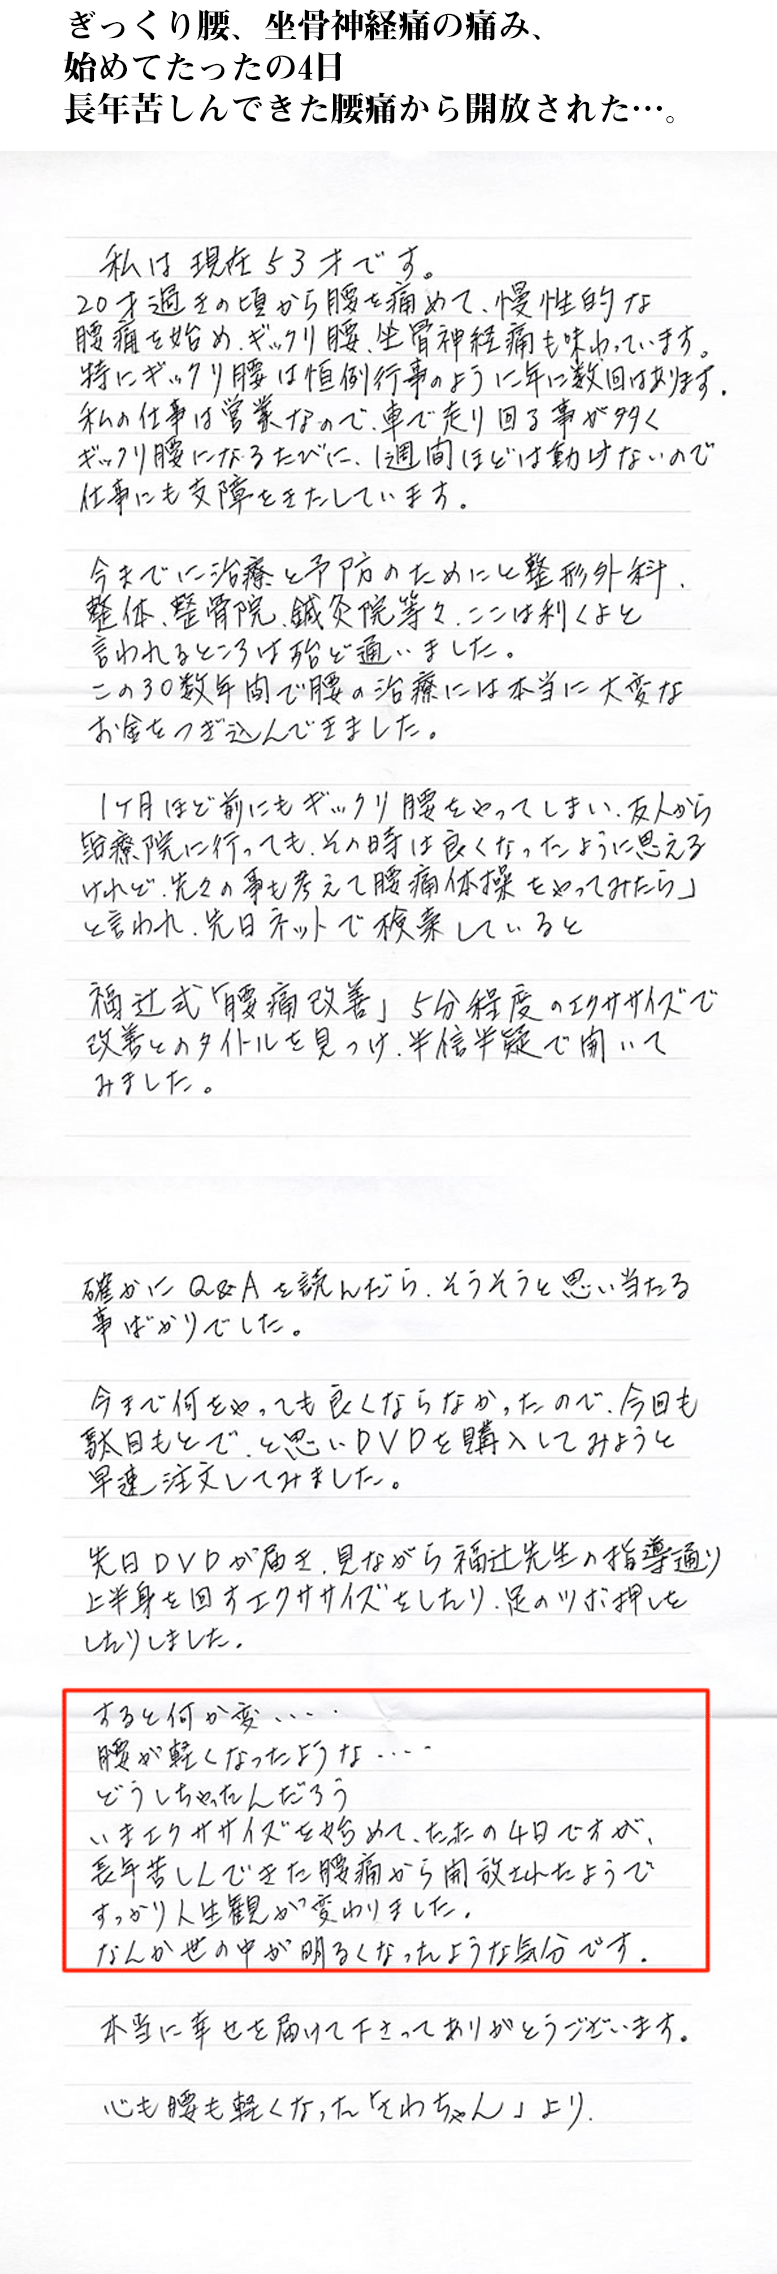 ぎっくり腰、坐骨神経痛の痛み、
始めてたったの4日
長年苦しんできた腰痛から開放された…。
私は現在53才です。
20才過ぎの頃から腰を痛めて、慢性的な
腰痛を始め、ギックリ腰、坐骨神経痛も味わっています。
特にギックリ腰は恒例行事のように年に数回はあります。
私の仕事は営業なので、車で走り回る事が多く
ギックリ腰になるたびに、1週間ほどは動けないので
仕事にも支障をきたしています。
今までに治療と予防のためにと整形外科、
整体、整骨院、鍼灸院等々、ここは利くよと
言われるところは殆ど通いました。
この30数年間で腰の治療には本当に大変な
お金をつぎ込んできました。
1ヶ月ほど前にもギックリ腰をやってしまい、友人から
治療院に行っても、その時は良くなったように思える
けれど、先々の事も考えて腰痛体操をやってみたら」
と言われ、先日ネットで検索していると
福辻式「腰痛改善」5分程度のエクササイズで
改善とのタイトルを見つけ、半信半疑で開いて
みました。
確かにQ&Aを読んだら、そうそうと思い当たる
事ばかりでした。
今まで何をやっても良くならなかったので、今回も
駄目もとで、と思いDVDを購入してみようと
早速注文してみました。
先日DVDが届き、見ながら福辻先生の指導通り
上半身を回すエクササイズをしたり、足のツボ押しを
したりしました。
すると何か変・・・・
腰が軽くなったような・・・・
どうしちゃったんだろう
いまエクササイズを始めて、たったの4日ですが、
長年苦しんできた腰痛から開放されたようで
すっかり人生観が変わりました。
なんか世の中が明るくなったような気分です。
本当に幸せを届けて下さってありがとうございます。
心も腰も軽くなった「さわちゃん」より.